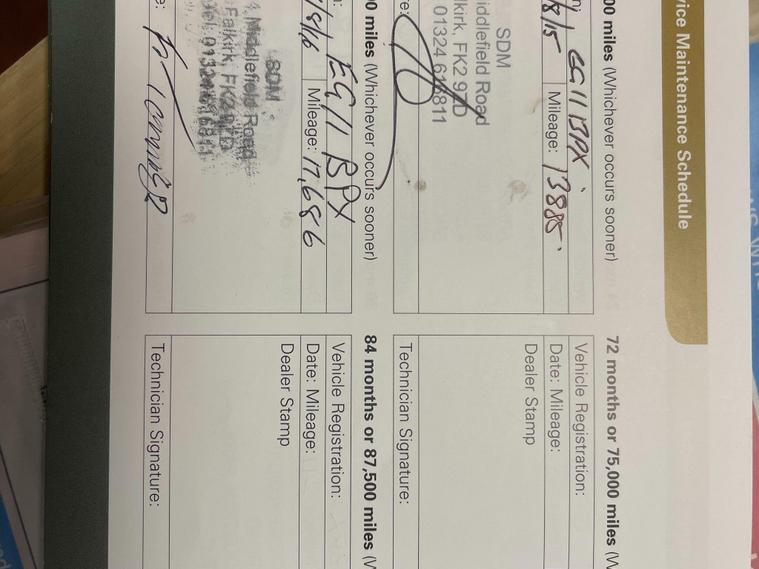 vice Maintenance Schedule
00 miles (Whichever occurs sooner)
EG11BPX
8/15
Mileage: 13885
SDM
iddlefield Road
lkirk, FK2 9
01324 61
811
00 miles (Whichever occurs sooner)
EG11 BPX
/8/16
Mileage: 17,686
SDM
Middlefield Road
Falkirk, FK2
Tel: 01324
72 months or 75,000 miles (W
Vehicle Registration:
Date: Mileage:
Dealer Stamp
Technician Signature:
84 months or 87,500 miles (W
Vehicle Registration:
Date: Mileage:
Dealer Stamp
Technician Signature: